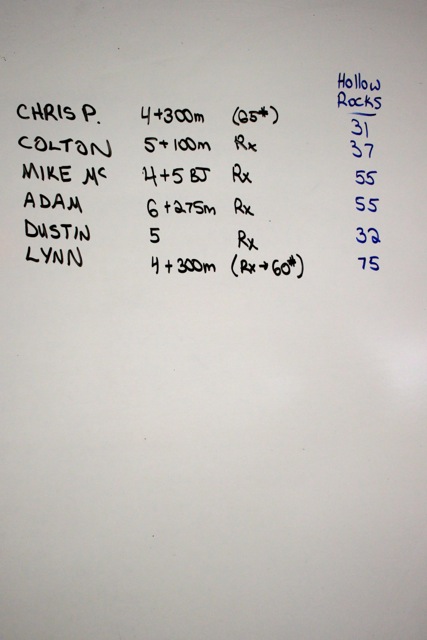 Hollow
Rocks
CHRIS P. 4+300m (65#) 31
COLTON 5+100m Rx 37
MIKE Mc 4+5 BJ Rx 55
ADAM 6+275m Rx 55
DUSTIN 5 Rx 32
LYNN 4+300m (Rx→60#) 75